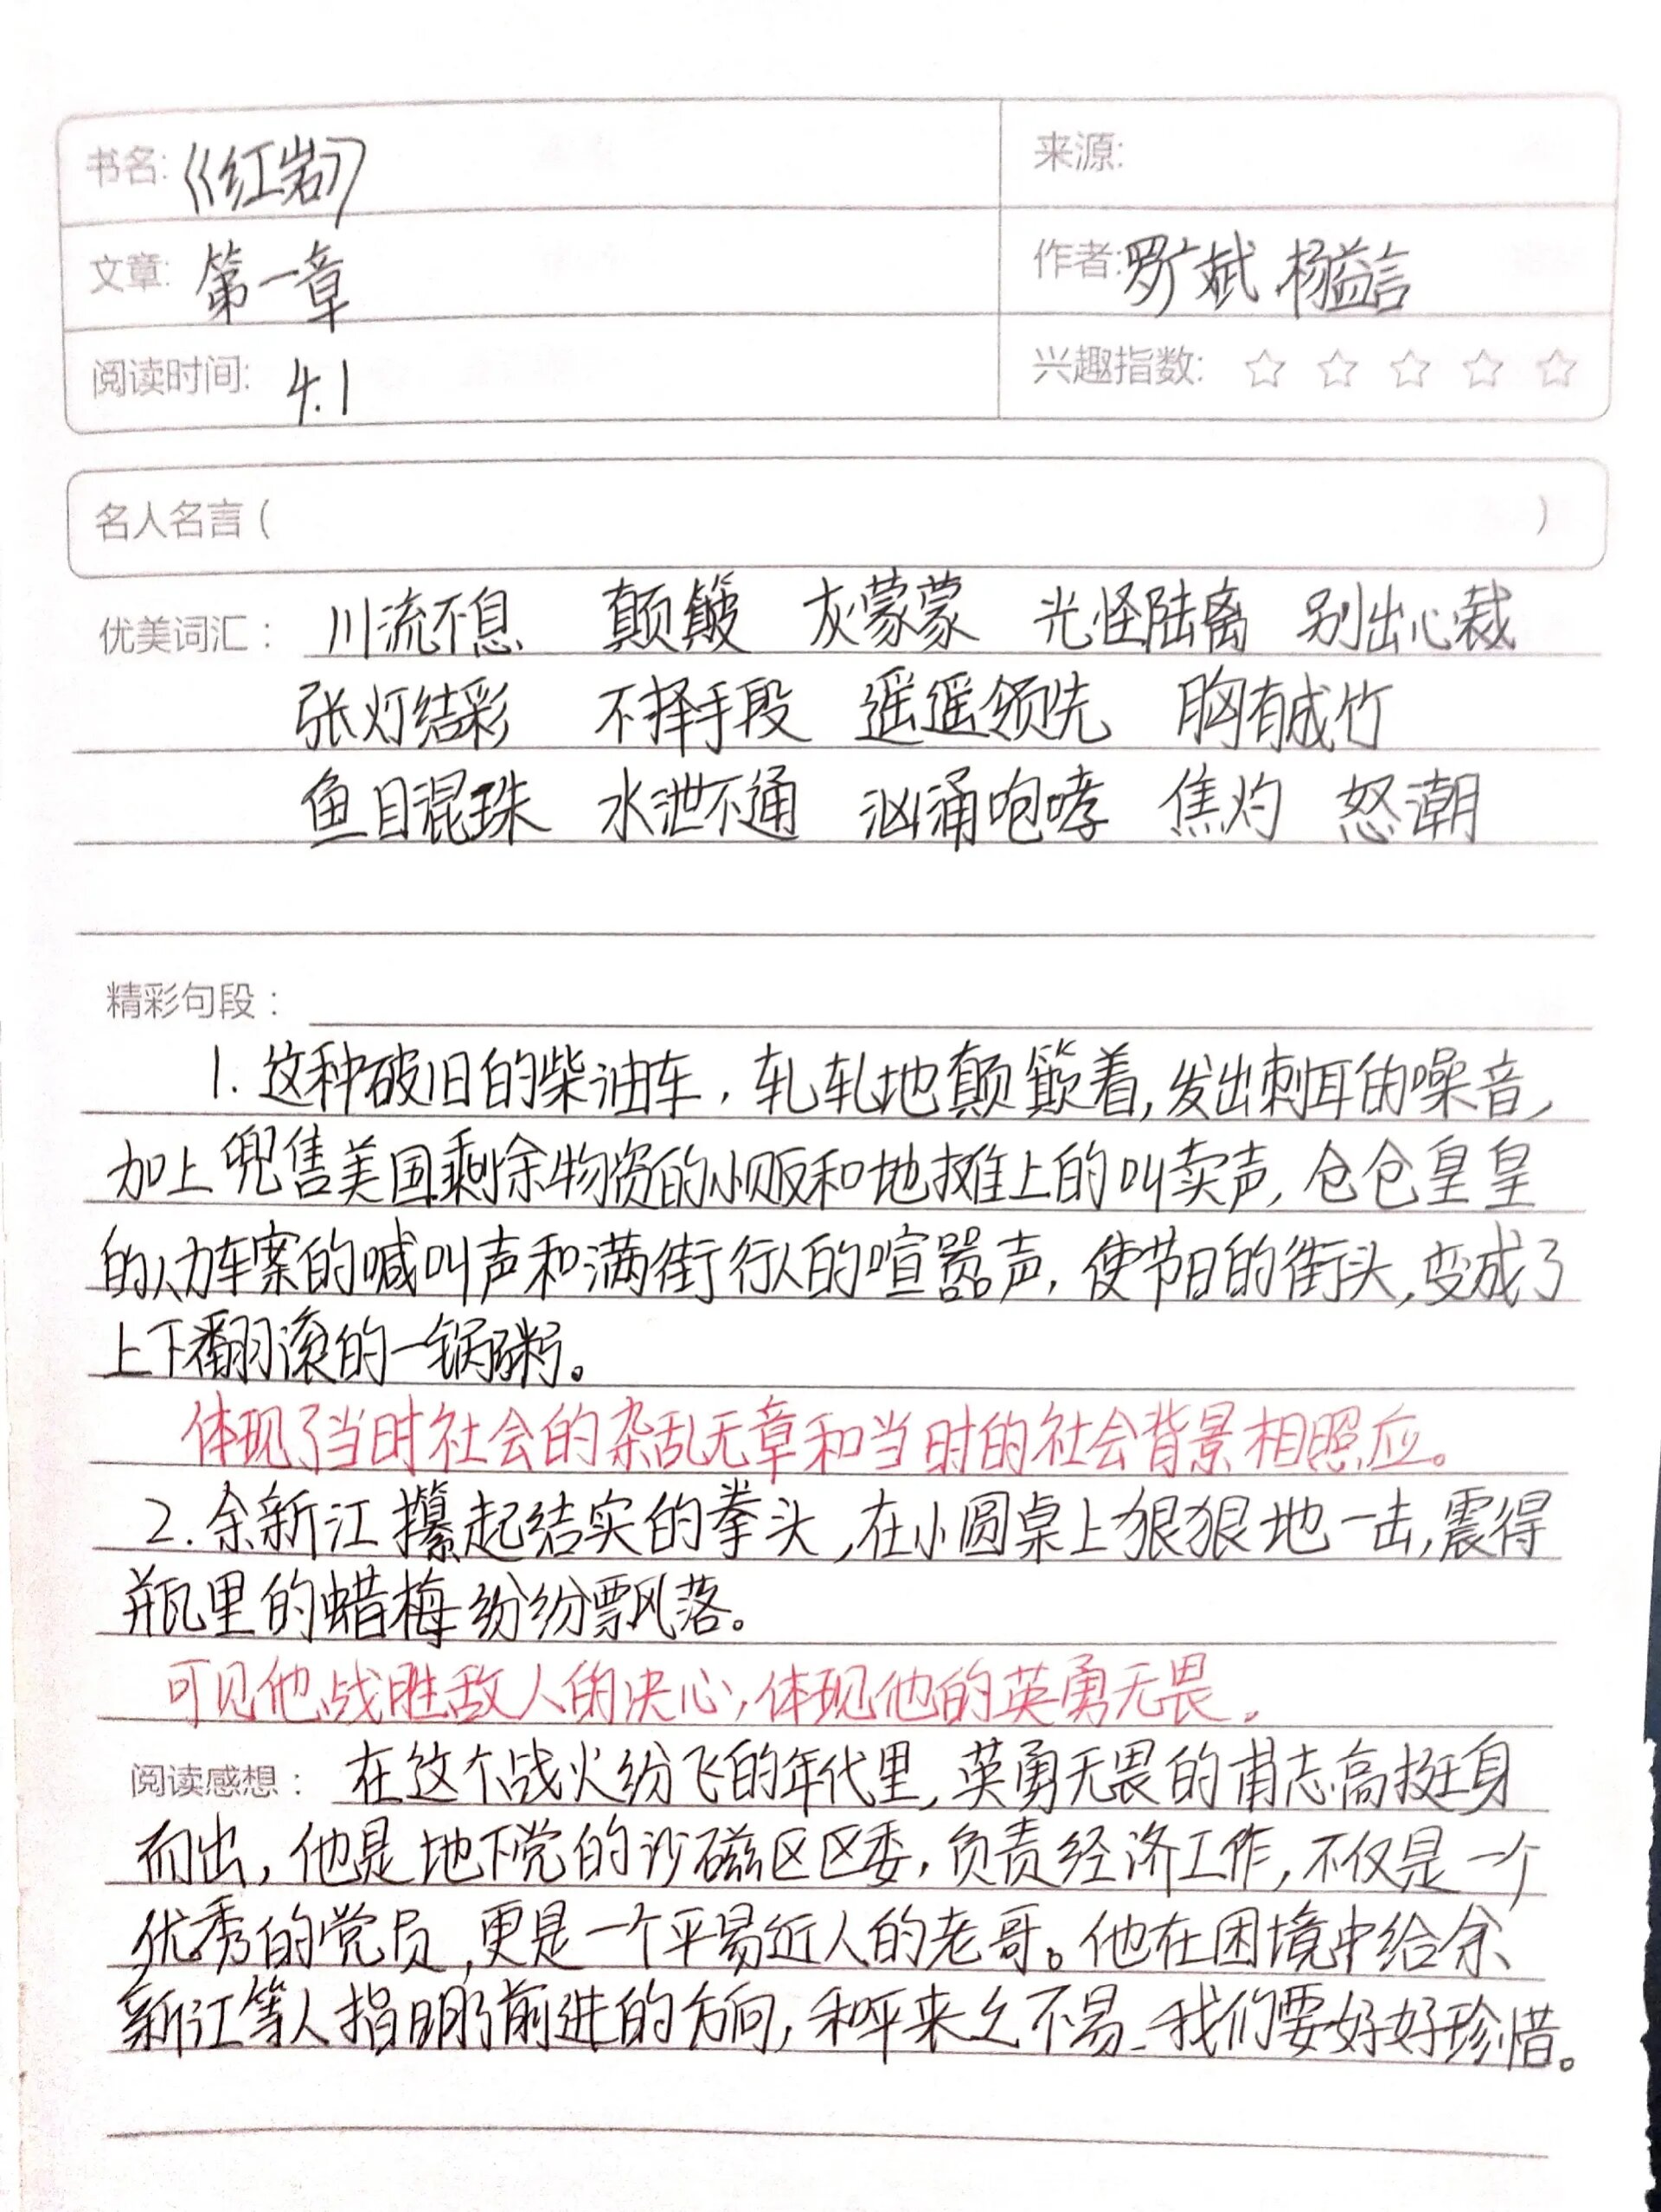 书名:《红岩》
来源:
文章: 第一章
作者:罗广斌 杨益言
阅读时间: 4.1
兴趣指数: ☆ ☆ ☆ ☆ ☆
名人名言( )
优美词汇: 川流不息 颠簸 灰蒙蒙 光怪陆离 别出心裁
张灯结彩 不择手段 遥遥领先 胸有成竹
鱼目混珠 水泄不通 汹涌咆哮 焦灼 怒潮
精彩句段:
1. 这种破旧的柴油车，轧轧地颠簸着，发出刺耳的噪音，
加上兜售美国剩余物资的小贩和地摊上的叫卖声，仓仓皇皇
的人力车案的喊叫声和满街行人的喧嚣声，使节日的街头，变成了
上下翻滚的一锅粥。
体现了当时社会的杂乱无章和当时的社会背景相照应。
2. 余新江攥起结实的拳头，在小圆桌上狠狠地一击，震得
瓶里的蜡梅纷纷飘落。
可见他战胜敌人的决心，体现他的英勇无畏。
阅读感想: 在这个战火纷飞的年代里，英勇无畏的甫志高挺身
而出，他是地下党的沙磁区区委，负责经济工作，不仅是一个
优秀的党员，更是一个平易近人的老哥。他在困境中给余
新江等人指明了前进的方向，和平来之不易、我们要好好珍惜。